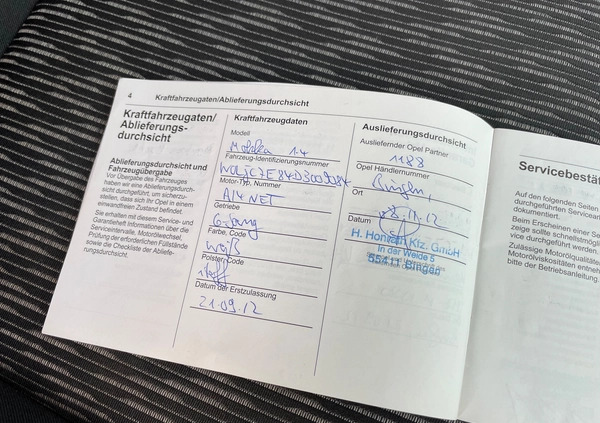 4 Kraftfahrzeugaten/Ablieferungsdurchsicht
Kraftfahrzeugaten/
Ablieferungs-
durchsicht
Ablieferungsdurchsicht und
Fahrzeugübergabe
Vor Übergabe des Fahrzeuges
haben wir eine Ablieferungsdurch-
sicht durchgeführt, um sicherzu-
stellen, dass sich Ihr Opel in einem
einwandfreien Zustand befindet.
Sie erhalten mit diesem Service- und
Garantieheft Informationen über die
Serviceintervalle, Motorölwechsel,
Prüfung der erforderlichen Füllstände
sowie die Checkliste der Abliefe-
rungsdurchsicht.
Kraftfahrzeugdaten
Modell
Mokka 1.4
Fahrzeug-Identifizierungsnummer
Motor-Typ, Nummer
A14NET
Getriebe
6-Gang
Farbe, Code
weiß
Polster, Code
Stoff
Datum der Erstzulassung
21.09.12
Auslieferungsdurchsicht
Ausliefernder Opel Partner
1188
Opel Händlernummer
Bingen,
Ort
Datum
H. Honrath Kfz. GmbH
In der Weide 5
55411 Bingen
Servicebestä
Auf den folgenden Seiten
durchgeführten Servicear
dokumentiert.
Beim Erscheinen einer Se
zeige sollte schnellstmögli
vice durchgeführt werden.
Zulässige Motorölqualitäte
Motorölviskositäten entneh
bitte der Betriebsanleitung.